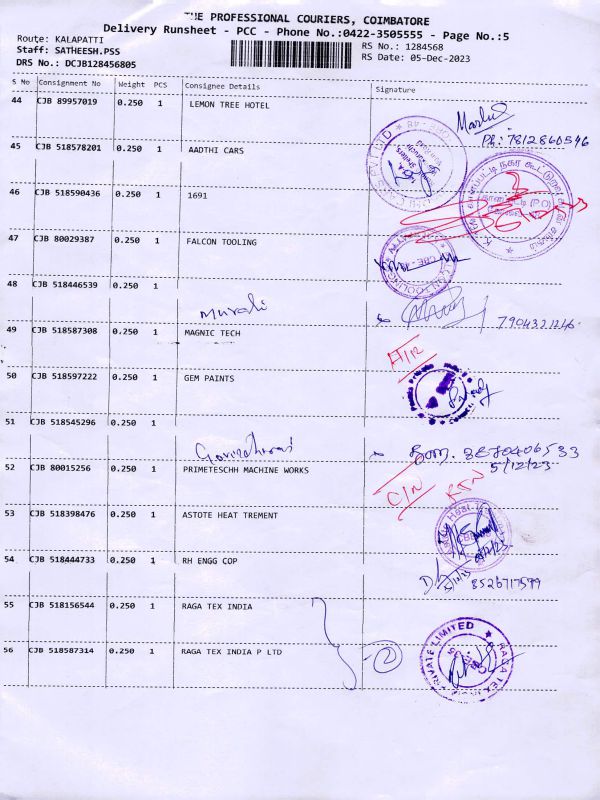 THE PROFESSIONAL COURIERS, COIMBATORE
Delivery Runsheet - PCC - Phone No.:0422-3505555 - Page No.:5
Route: KALAPATTI
RS No.: 1284568
Staff: SATHEESH.PSS
RS Date: 05-Dec-2023
DRS No.: DCJB128456805
S No Consignment No Weight PCS Consignee Details Signature
44 CJB 89957019 0.250 1 LEMON TREE HOTEL
Ph: 7812860596
45 CJB 518578201 0.250 1 AADTHI CARS
46 CJB 518590436 0.250 1 1691
47 CJB 80029387 0.250 1 FALCON TOOLING
48 CJB 518446539 0.250 1
Murali
7904321246
49 CJB 518587308 0.250 1 MAGNIC TECH
50 CJB 518597222 0.250 1 GEM PAINTS
51 CJB 518545296 0.250 1
5/12/23
52 CJB 80015256 0.250 1 PRIMETESCHH MACHINE WORKS
C/N
53 CJB 518398476 0.250 1 ASTOTE HEAT TREMENT
54 CJB 518444733 0.250 1 RH ENGG COP
8526717599
55 CJB 518156544 0.250 1 RAGA TEX INDIA
56 CJB 518587314 0.250 1 RAGA TEX INDIA P LTD
2
RAGA TEX INDIA PRIVATE LIMITED